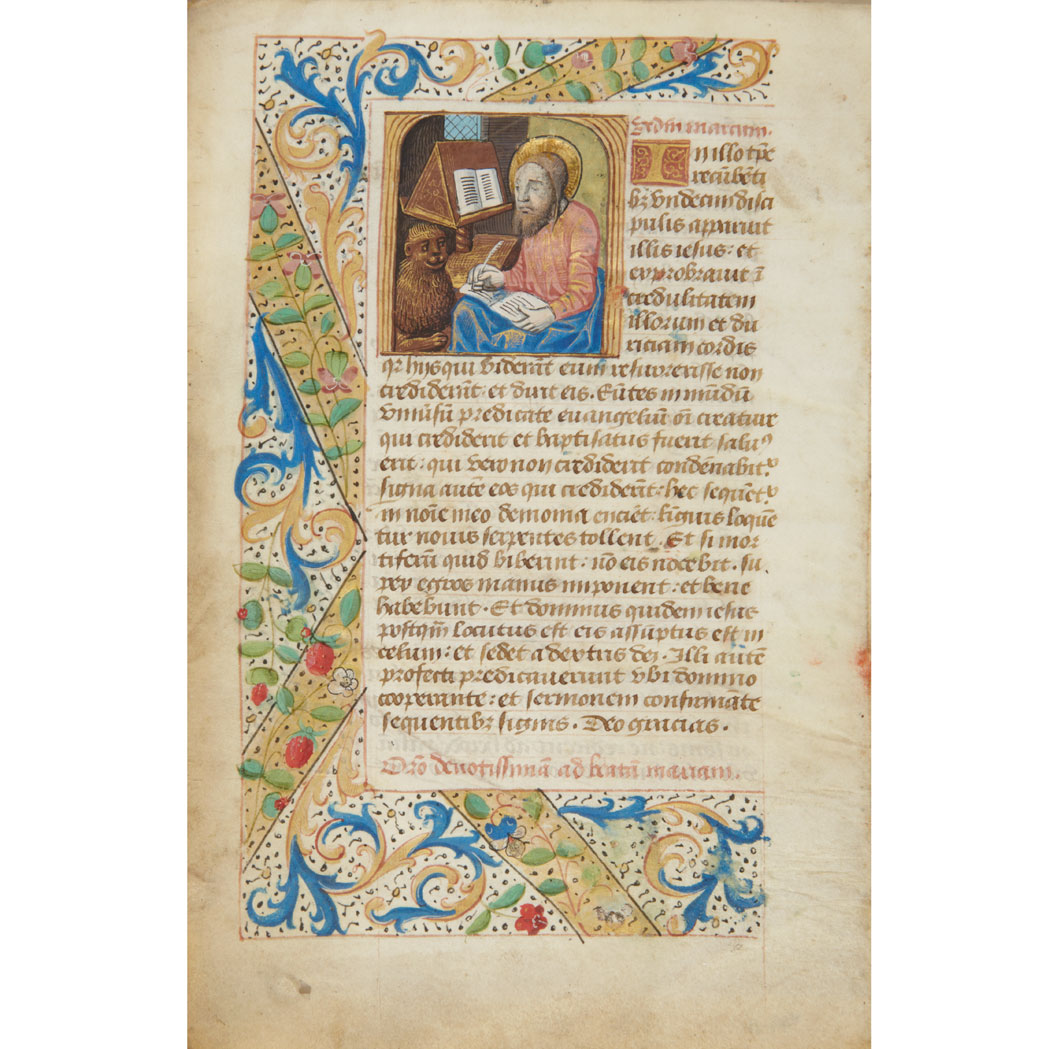 Scdm marcum.
In illo tp̄e
recūbēti
bꝫ vndecim disci
pulis apparuit
illis iesus : et
exprobrauit ī
credulitatem
illorum et du
riciam cordis
qꝛ hys qui viderāt eum resurrexisse non
crediderūt · et dixit eis . Eūtes in mūdū
vniūsū predicate euangeliū oī creature
qui crediderit et baptisatus fuerit saluꝰ
erit : qui vero non crediderit condēnabit᷑
signa autē eos qui crediderīt hec sequēt᷑
in noīe meo demonia eiiciēt linguis loquē
tur nouis serpentes tollent . Et si mor
tiferū quid biberint : nō eis nocebit . su
per egros manus imponent : et bene
habebunt . Et dominus quidem iesus
postqm̄ locutus est eis assūptus est in
celum : et sedet a dextris dei . Illi autē
profecti predicauerunt vbi domino
cooperante : et sermonem confirmāte
sequentibꝫ signis . Deo gracias .
Orō deuotissima ad beatā mariam .